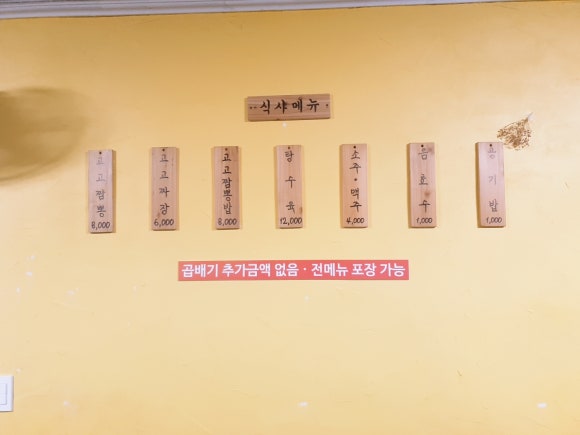 식샤메뉴
고고짬뽕
8,000
고고짜장
6,000
고고짬뽕밥
8,000
탕수육
12,000
소주·맥주
4,000
음료수
1,000
공기밥
1,000
곱배기 추가금액 없음·전메뉴 포장 가능